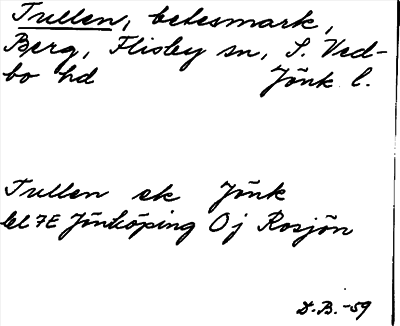 Tullen, betesmark,
Berg, Flisby sn, S. Ved-
bo hd Jönk l.
Tullen ek Jönk
bl 7E Jönköping Oj Rosjön
D.B. -59